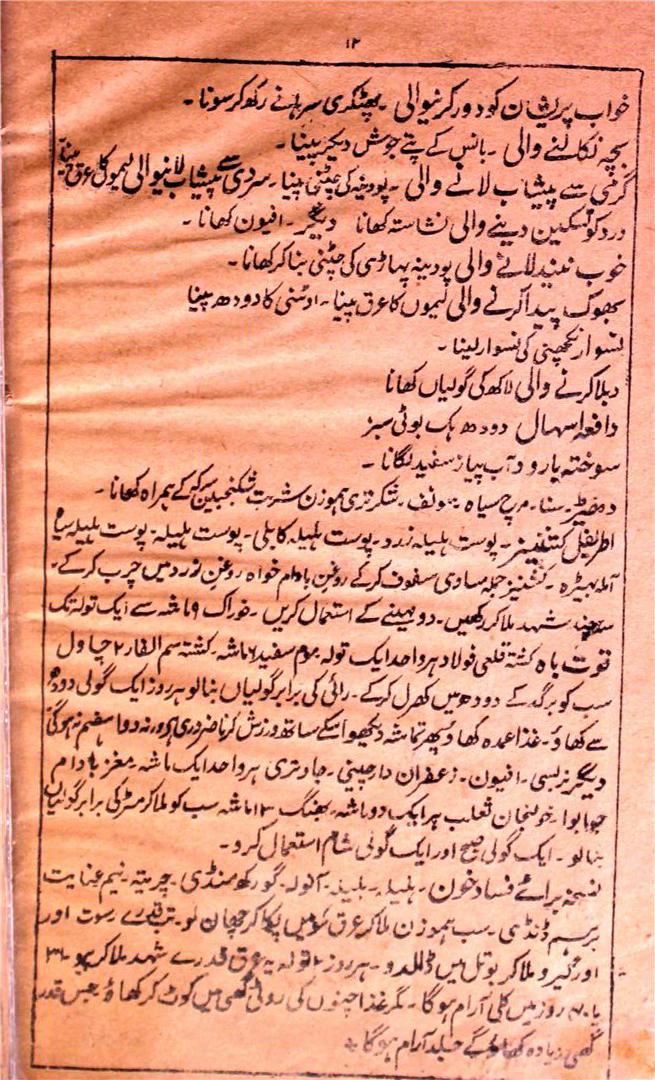 ۱۲
خواب پریشان کو دور کرنیوالی ۔ پھٹکری سرہانے رکھکر سونا ۔
بچہ نکالنے والی ۔ بانس کے پتے جوش دیکر پینا ۔
گرمی سے پیشاب لانے والی ۔ پودینہ کی چٹنی پینا ۔ سردی سے پیشاب لانیوالی لیموکا عرق پینا
درد کو تسکین دینے والی نشاستہ کھانا دیگر ۔ افیون کھانا ۔
خوب نیند لانے والی پودینہ پہاڑی کی چٹنی بنا کر کھانا ۔
بھوک پیدا کرنے والی لیموں کا عرق پینا ۔ اونٹنی کا دودھ پینا
نسوار نکچھنی کی نسوار لینا ۔
دبلا کرنے والی لاکھ کی گولیاں کھانا
دافعہ اسہال دودھ بوٹی سبز
سوختہ بارود آب پیاز سفید لگانا ۔
سنا ۔ مرچ سیاہ ۔ سونف ۔ شکر تری ہموزن شربت سکنجبین سرکہ کے ہمراہ کھانا ۔
اطریفل کشنیز ۔ پوست ہلیلہ زرد ۔ پوست ہلیلہ کابلی ۔ پوست ہلیلہ ۔ پوست ہلیلہ سیاہ
آملہ بہیڑہ ۔ کشنیز جملہ مساوی سفوف کر کے روغن بادام خواہ روغن زرد میں چرب کر کے ۔
سہ چند شہد ملا کر رکھیں ۔ دو مہینے کے استعمال کریں ۔ خوراک ۹ ماشہ سے ایک تولہ تک
قوت باہ کشتہ قلعی فولاد ہر واحد ایک تولہ موم سفید ۶ ماشہ ۔ کشتہ سم الفار ۲ چاول
سب کو برگد کے دودھ میں کھرل کر کے ۔ رائی کی برابر گولیاں بنا لو ہر روز ایک گولی دودھ
سے کھاؤ ۔ غذا عمدہ کھاؤ پھر تماشہ دیکھو اسکے ساتھ ورزش کرنا ضروری ہے ورنہ دوا ہضم نہ ہوگی
دیگر افیون ۔ زعفران دارچینی ۔ جاوتری ہر واحد ایک ماشہ مغز بادام
خولنجان ثعلب ہر ایک دو ماشہ ۔ بھنگ ۱۳ ماشہ سب کو ملا کر مٹر کی برابر گولیاں
بنا لو ۔ ایک گولی صبح اور ایک گولی شام استعمال کرو ۔
نسخہ برائے فساد خون ۔ ہلیلہ ۔ بلیلہ ۔ آنولہ ۔ گورکھ منڈی ۔ چریتہ ۔ نیم عنایت
برہم ڈنڈی ۔ سب ہموزن ملا کر عرق میں پکا کر چھان لو ۔ تب قدرے رسوت اور
اور گیرو ملا کر بوتل میں ڈالدو ۔ ہر روز ۲ تولہ یہ عرق قدرے شہد ملا کر پیو
یا ۴۰ روز میں کلی آرام ہوگا ۔ مگر غذا چنوں کی روٹی گھی میں کوٹ کر کھاؤ جس قدر
گھی زیادہ کھاؤ گے جلد آرام ہوگا